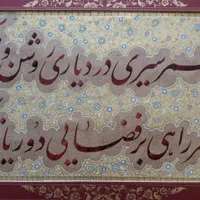 سیری در دیاری روشن و
راهی بر فضایی دور یا